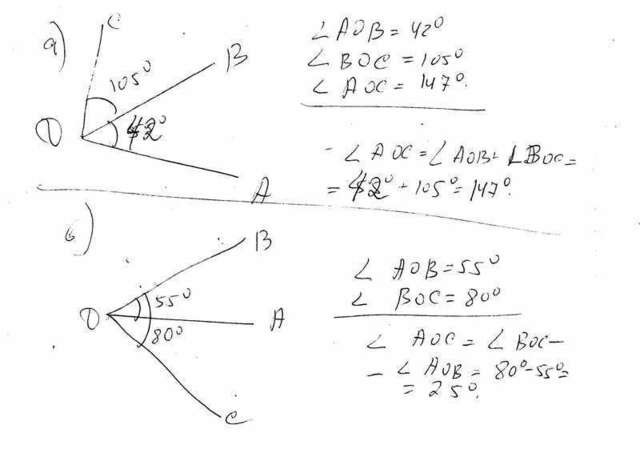 а)
C
B
105°
42°
O
A
∠AOB = 42°
∠BOC = 105°
∠AOC = 147°.
- ∠AOC = ∠AOB + ∠BOC =
= 42° + 105° = 147°.
б)
B
55°
O
A
80°
C
∠ AOB = 55°
∠ BOC = 80°
∠ AOC = ∠ BOC -
- ∠ AOB = 80° - 55° =
= 25°.